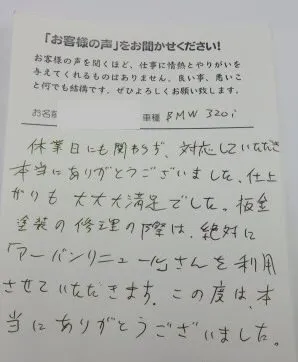 「お客様の声」をお聞かせください!
お客様の声を聞くほど、仕事に情熱とやりがいを
与えてくれるものはありません。良い事、悪いこ
と何でも結構です。ぜひよろしくお願い致します。
お名前 車種 BMW 320i
休業日にも関わらず、対応していただき
本当にありがとうございました。仕上
がりも大大大満足でした。板金
塗装の修理の際は、絶対に
「アーバンリニュール」さんを利用
させていただきます。この度は、本
当にありがとうございました。